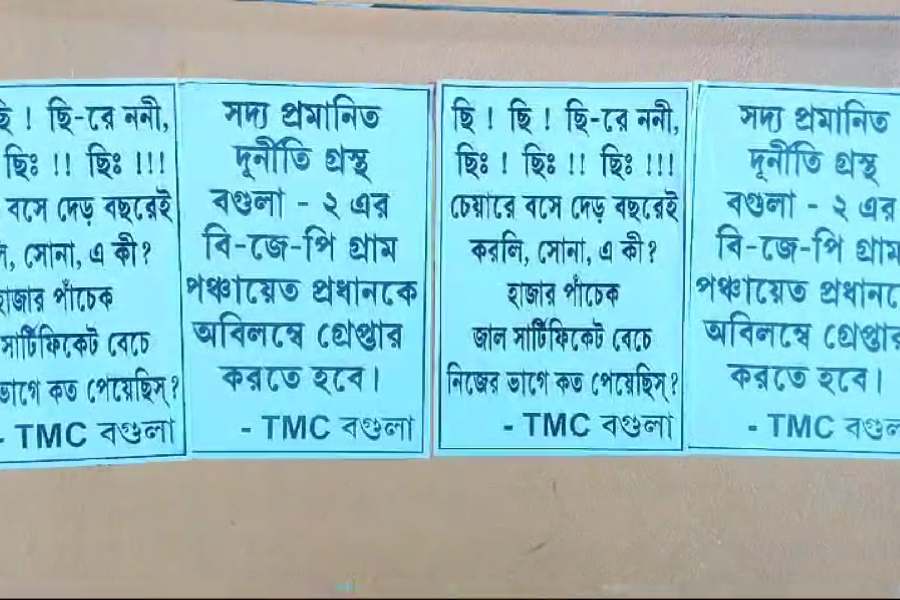 ছি ! ছি-রে ননী,
ছিঃ !! ছিঃ !!!
বসে দেড় বছরেই
সোনা, এ কী?
হাজার পাঁচেক
সার্টিফিকেট বেচে
ভাগে কত পেয়েছিস্?
- TMC বগুলা
সদ্য প্রমানিত
দূর্নীতি গ্রস্থ
বগুলা - ২ এর
বি-জে-পি গ্রাম
পঞ্চায়েত প্রধানকে
অবিলম্বে গ্রেপ্তার
করতে হবে।
- TMC বগুলা
ছি ! ছি ! ছি-রে ননী,
ছিঃ ! ছিঃ !! ছিঃ !!!
চেয়ারে বসে দেড় বছরেই
করলি, সোনা, এ কী?
হাজার পাঁচেক
জাল সার্টিফিকেট বেচে
নিজের ভাগে কত পেয়েছিস্?
- TMC বগুলা
সদ্য প্রমানিত
দূর্নীতি গ্রস্থ
বগুলা - ২ এর
বি-জে-পি গ্রাম
পঞ্চায়েত
অবিলম্বে গ্রেপ্তার
করতে হবে।
- TMC